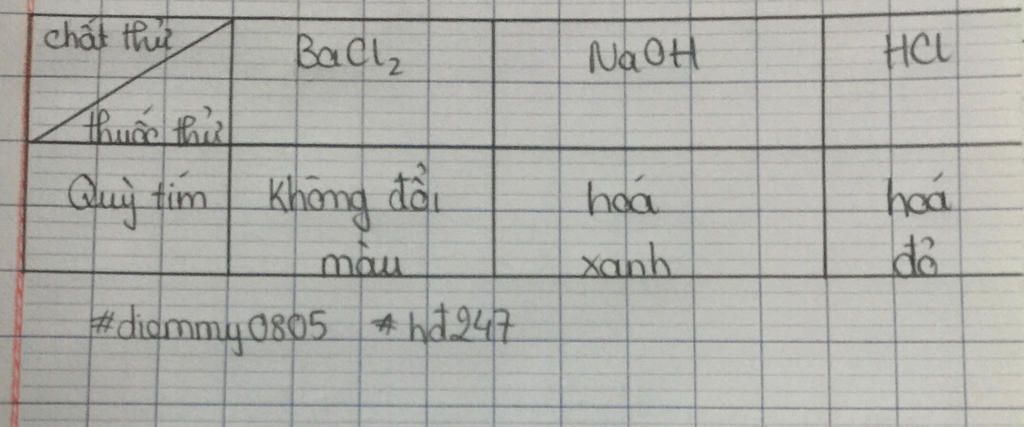 chất thử BaCl2 NaOH HCl
thuốc thử
Quỳ tím Không đổi hoá hoá
màu xanh đỏ
#diammy0805 *hđ247